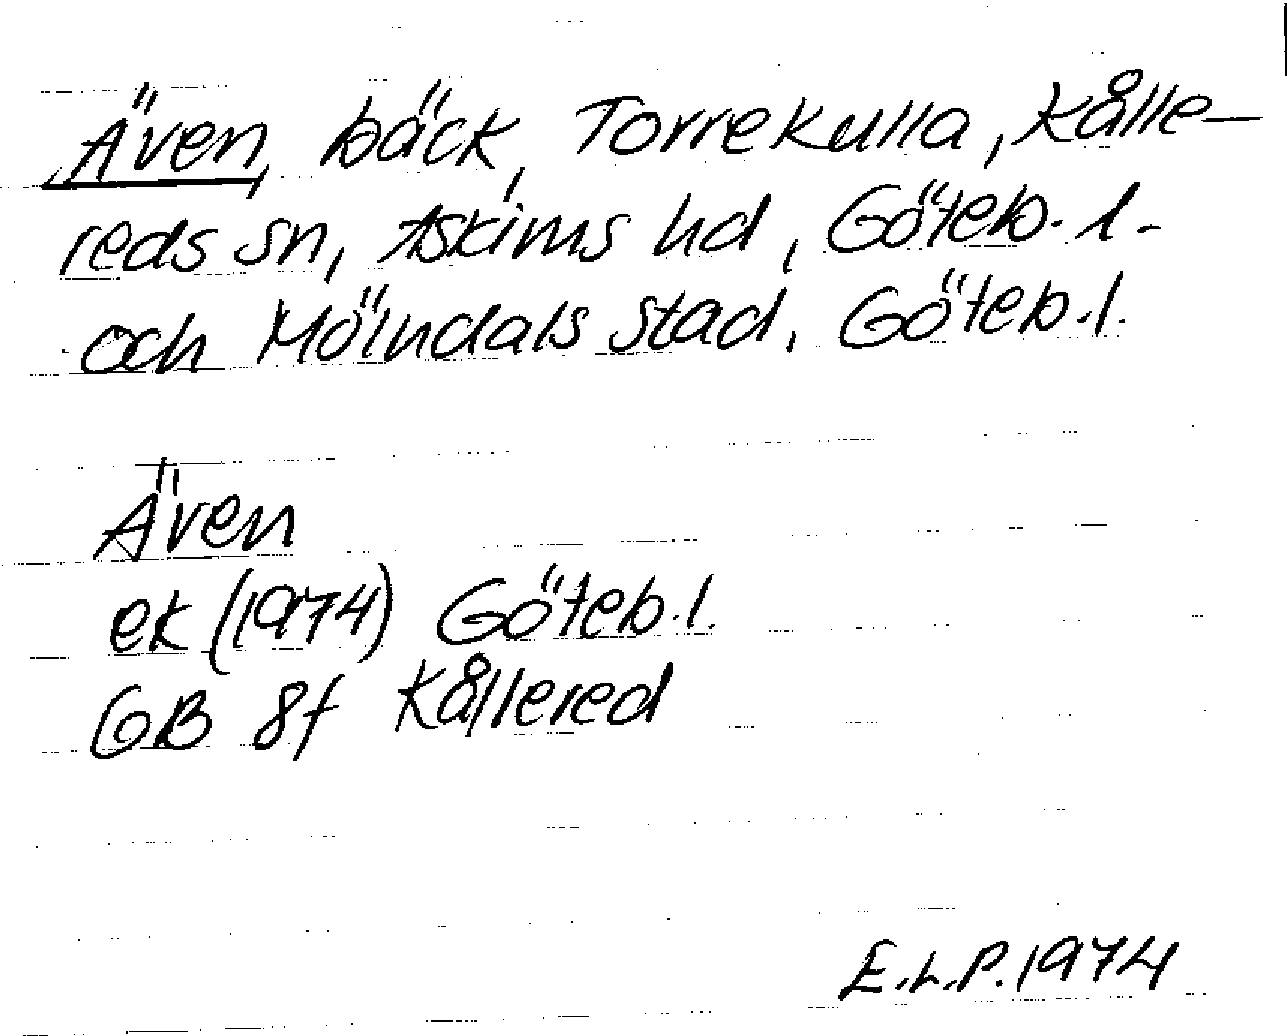 Även, bäck, Torrekulla, Kålle-
reds sn, Askims hd, Göteb. l.
och Mölndals stad, Göteb.l.
Även
ek (1974) Göteb.l.
GB 8f Kållered
E.L.P. 1974